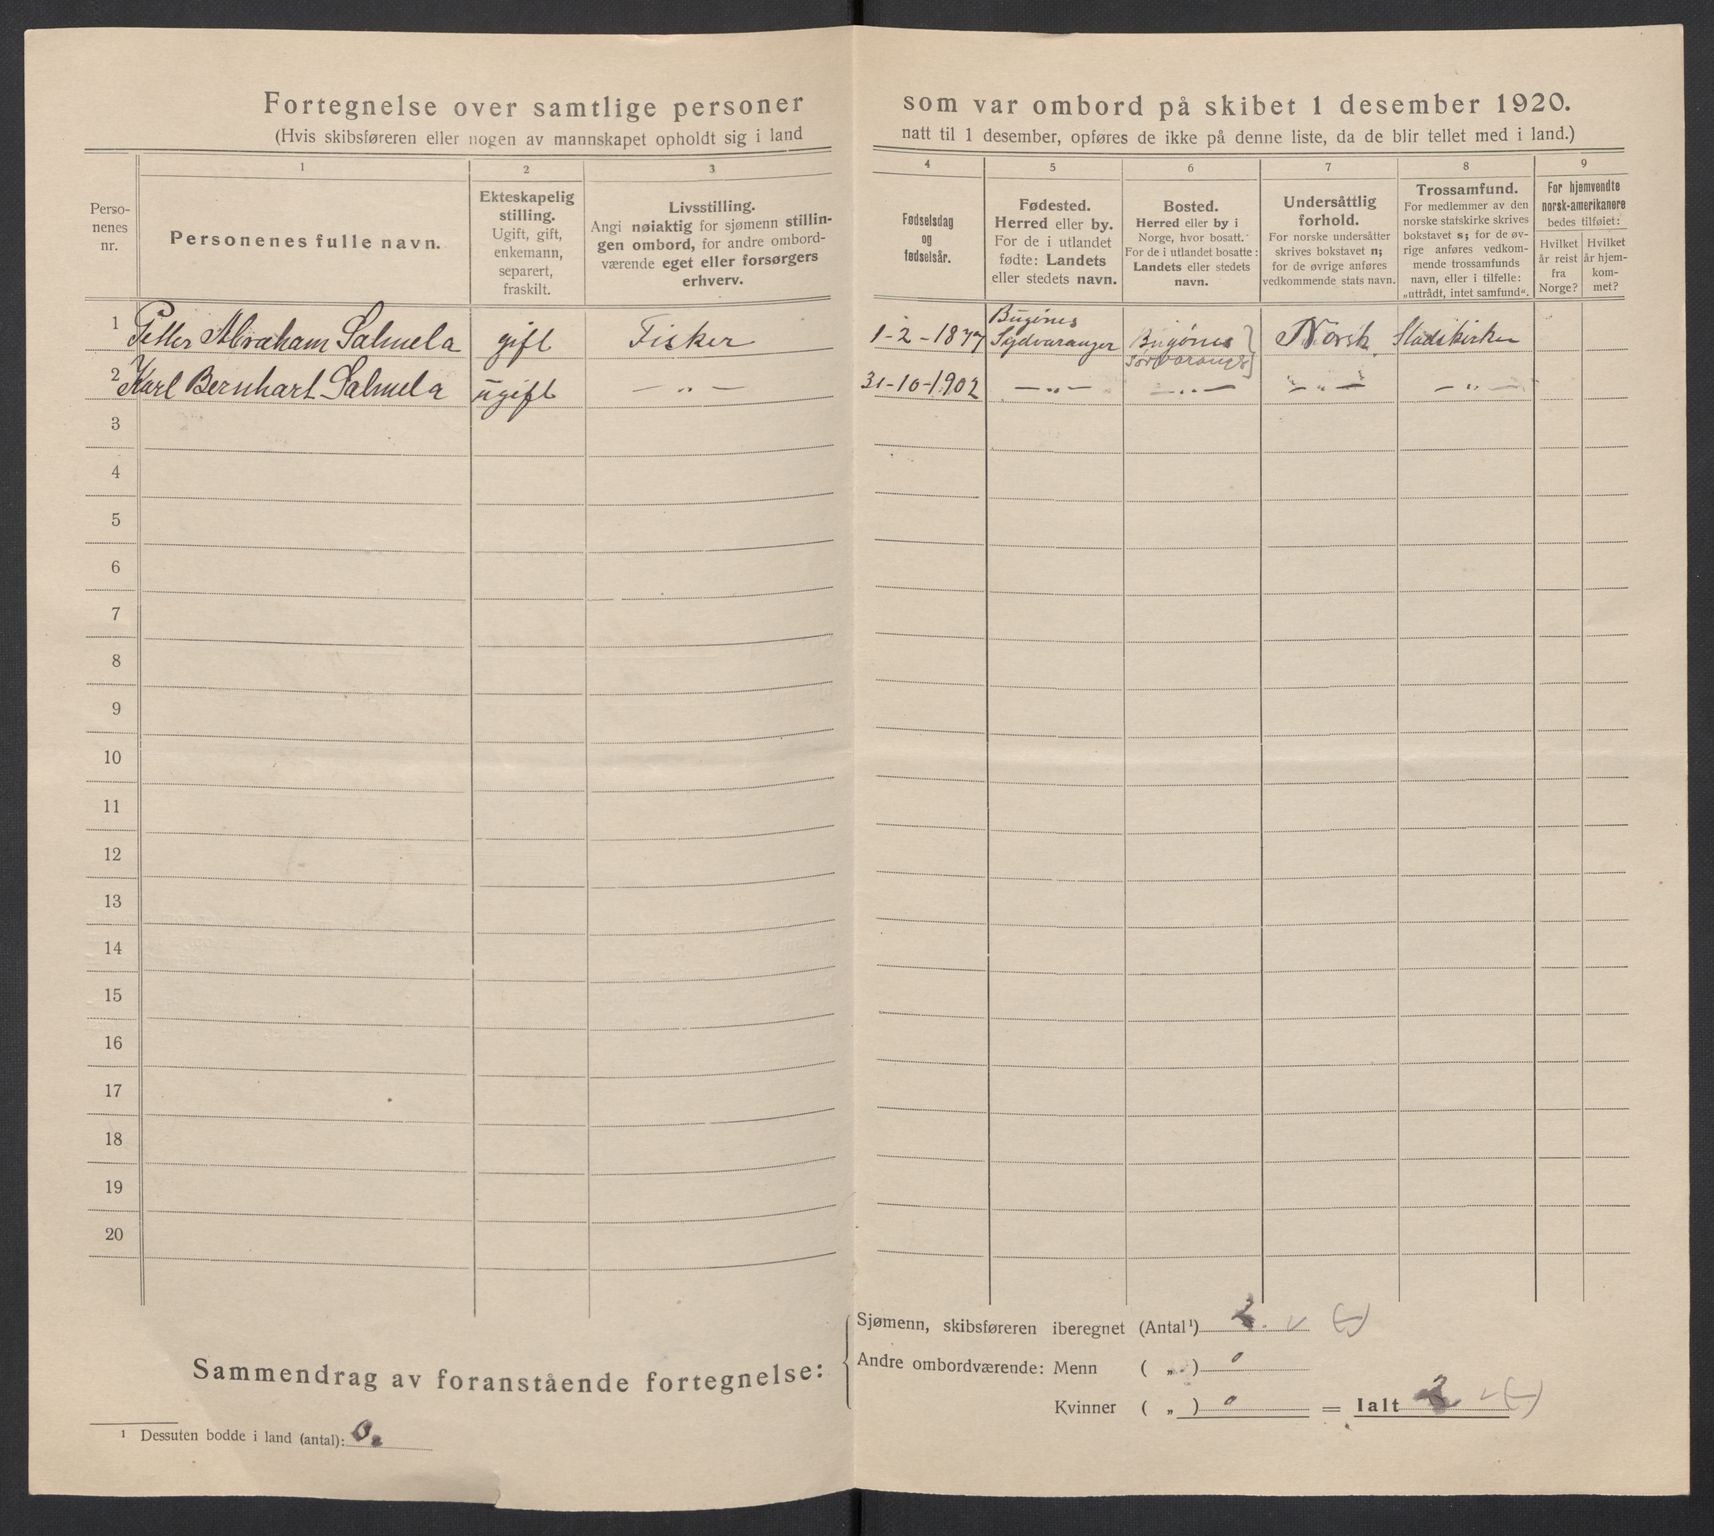 Fortegnelse over samtlige personer som var ombord på skibet 1 desember 1920.
(Hvis skibsføreren eller nogen av mannskapet opholdt sig i land natt til 1 desember, opføres de ikke på denne liste, da de blir tellet med i land.)
Perso-
nenes
nr.
1
Personenes fulle navn.
2
Ekteskapelig
stilling.
Ugift, gift,
enkemann,
separert,
fraskilt.
3
Livsstilling.
Angi nøiaktig for sjømenn stillin-
gen ombord, for andre ombord-
værende eget eller forsørgers
erhverv.
4
Fødselsdag
og
fødselsår.
5
Fødested.
Herred eller by.
For de i utlandet
fødte: Landets
eller stedets navn.
6
Bosted.
Herred eller by i
Norge, hvor bosatt.
For de i utlandet bosatte:
Landets eller stedets
navn.
7
Undersåttlig
forhold.
For norske undersåtter
skrives bokstavet n;
for de øvrige anføres
vedkommende stats navn.
8
Trossamfund.
For medlemmer av den
norske statskirke skrives
bokstavet s; for de øv-
rige anføres vedkom-
mende trossamfunds
navn, eller i tilfelle:
„uttrådt, intet samfund".
9
For hjemvendte
norsk-amerikanere
bedes tilføiet:
Hvilket
år reist
fra
Norge?
Hvilket
år hjem-
kom-
met?
1 Petter Abraham Salmela gift Fisker 1-2-1877 Bugönes Sydvaranger Bugönes Sørvaranger Norsk Stadskirken
2 Karl Bernhart Salmela ugift — „ — 31-10-1902 — „ — — „ — — „ — — „ —
3
4
5
6
7
8
9
10
11
12
13
14
15
16
17
18
19
20
Sammendrag av foranstående fortegnelse:
Sjømenn, skibsføreren iberegnet (Antal¹) 2. v (-)
Andre ombordværende: Menn ( „ ) 0
Kvinner ( „ ) 0 = Ialt 2 v (-)
¹ Dessuten bodde i land (antal): 0.